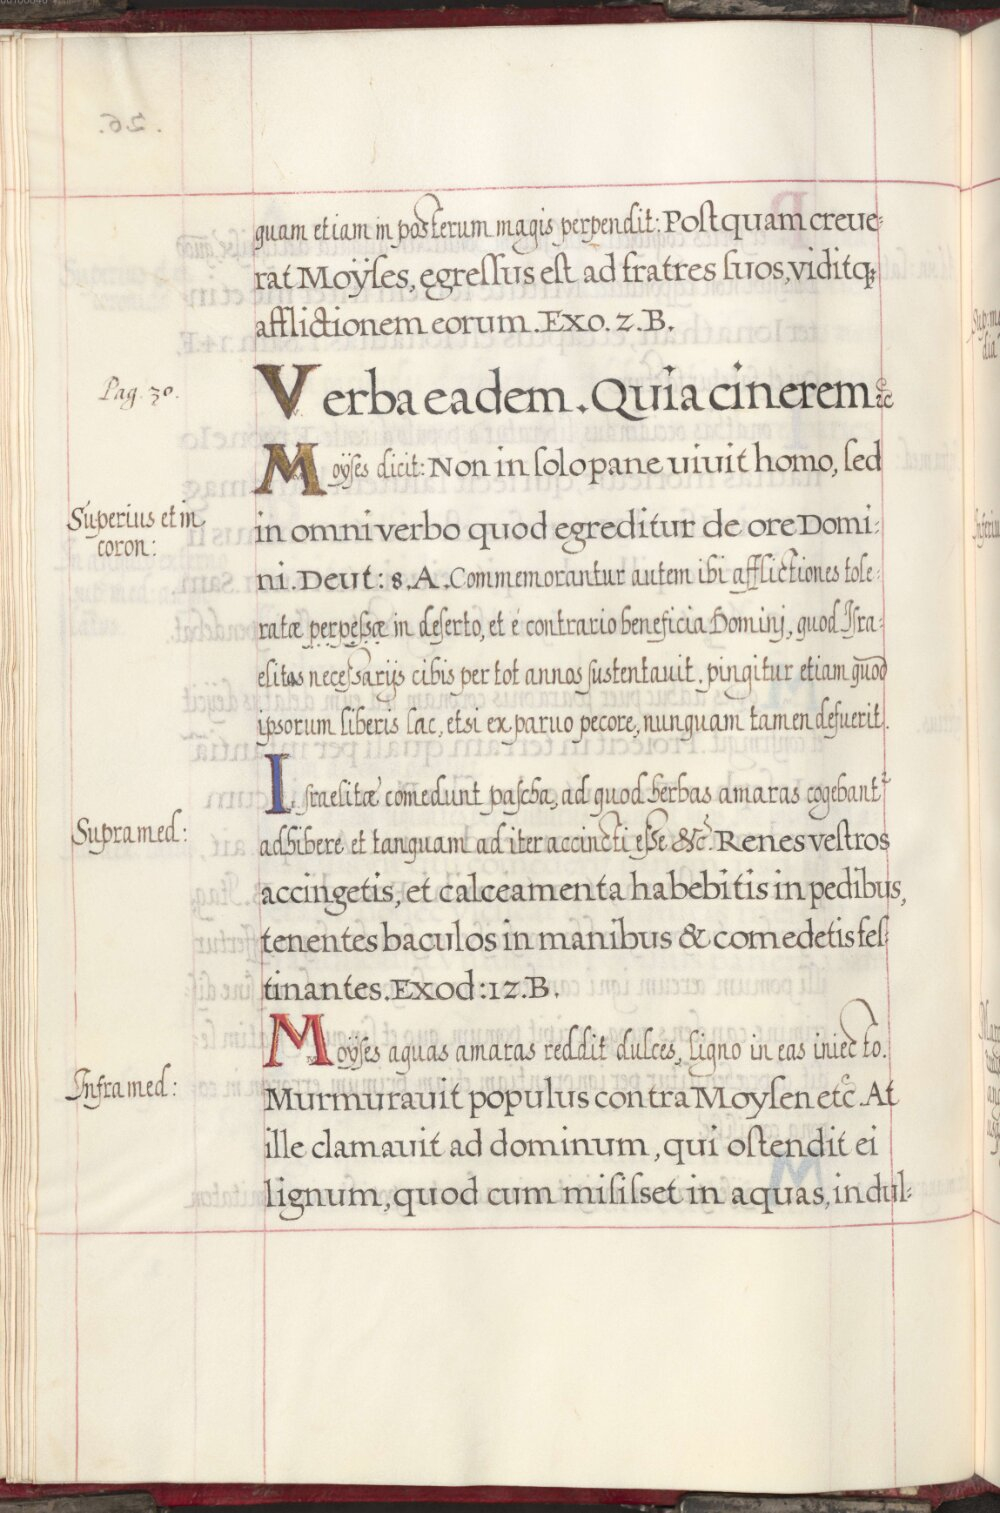 quam etiam in posterum magis perpendit: Postquam creue-
rat Moÿses, egressus est ad fratres suos, viditq;
afflictionem eorum. Exo. 2. B.
Pag. 30.
Verba eadem. Quia cinerem &c
Moÿses dicit: Non in solo pane uiuit homo, sed
Superius et in
coron:
in omni verbo quod egreditur de ore Domi-
ni. Deut: 8. A. Commemorantur autem ibi afflictiones tole-
ratæ perpessæ in deserto, et é contrario beneficia Domini, quod Isra-
elitas necessarijs cibis per tot annos sustentauit, pingitur etiam quod
ipsorum liberis lac, etsi ex paruo pecore, nunquam tamen defuerit.
Israelitæ comedunt pascha, ad quod herbas amaras cogebant
Supra med:
adhibere et tanquam ad iter accincti esse &c. Renes vestros
accingetis, et calceamenta habebitis in pedibus,
tenentes baculos in manibus & comedetis fes-
tinantes. Exod: 12. B.
Moÿses aquas amaras reddit dulces, ligno in eas iniecto.
Infra med:
Murmurauit populus contra Moysen etc. At
ille clamauit ad dominum, qui ostendit ei
lignum, quod cum misisset in aquas, in dul-